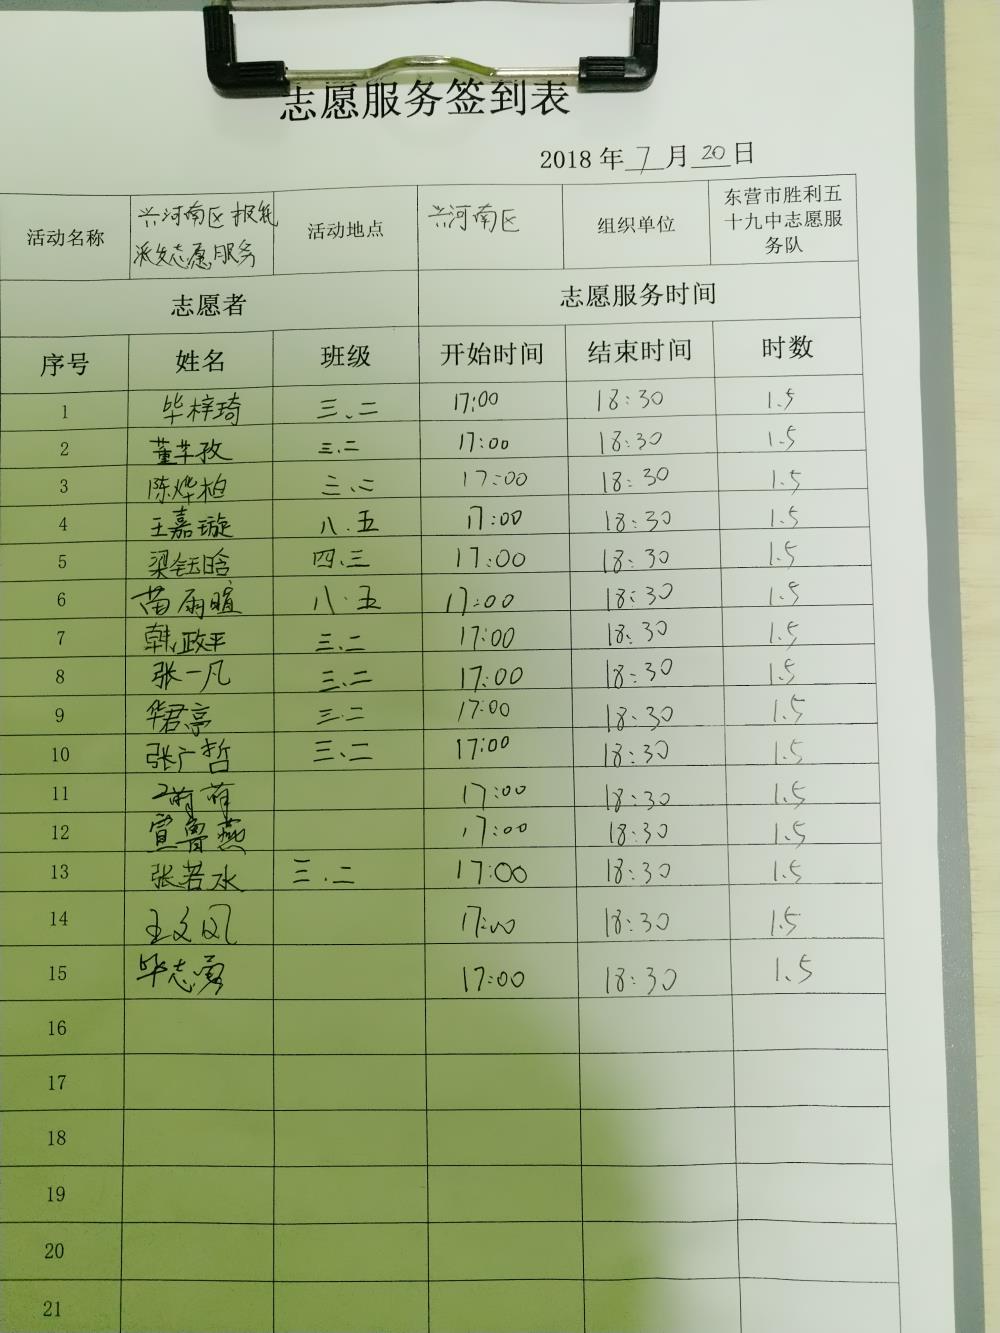 志愿服务签到表
2018 年 7 月 20 日
活动名称 兴河南区报纸派发志愿服务 活动地点 兴河南区 组织单位 东营市胜利五十九中志愿服务队
志愿者 志愿服务时间
序号 姓名 班级 开始时间 结束时间 时数
1 毕梓琦 三.二 17:00 18:30 1.5
2 董芊孜 三.二 17:00 18:30 1.5
3 陈烨柏 三.二 17:00 18:30 1.5
4 王嘉璇 八.五 17:00 18:30 1.5
5 梁钰晗 四.三 17:00 18:30 1.5
6 苗雨暄 八.五 17:00 18:30 1.5
7 韩政平 三.二 17:00 18:30 1.5
8 张一凡 三.二 17:00 18:30 1.5
9 华君亭 三.二 17:00 18:30 1.5
10 张广哲 三.二 17:00 18:30 1.5
11 17:00 18:30 1.5
12 宣鲁燕 17:00 18:30 1.5
13 张若水 三.二 17:00 18:30 1.5
14 王文风 17:00 18:30 1.5
15 毕志勇 17:00 18:30 1.5
16
17
18
19
20
21